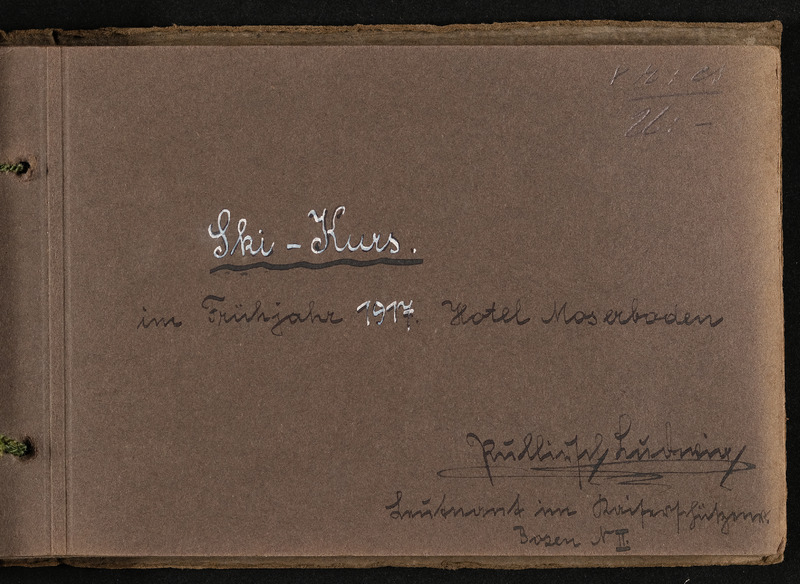 Ski - Kurs.
im Frühjahr 1917. Hotel Moserboden
Ludwig
Leutnant im Kaiserschützenr.
Bozen N II.